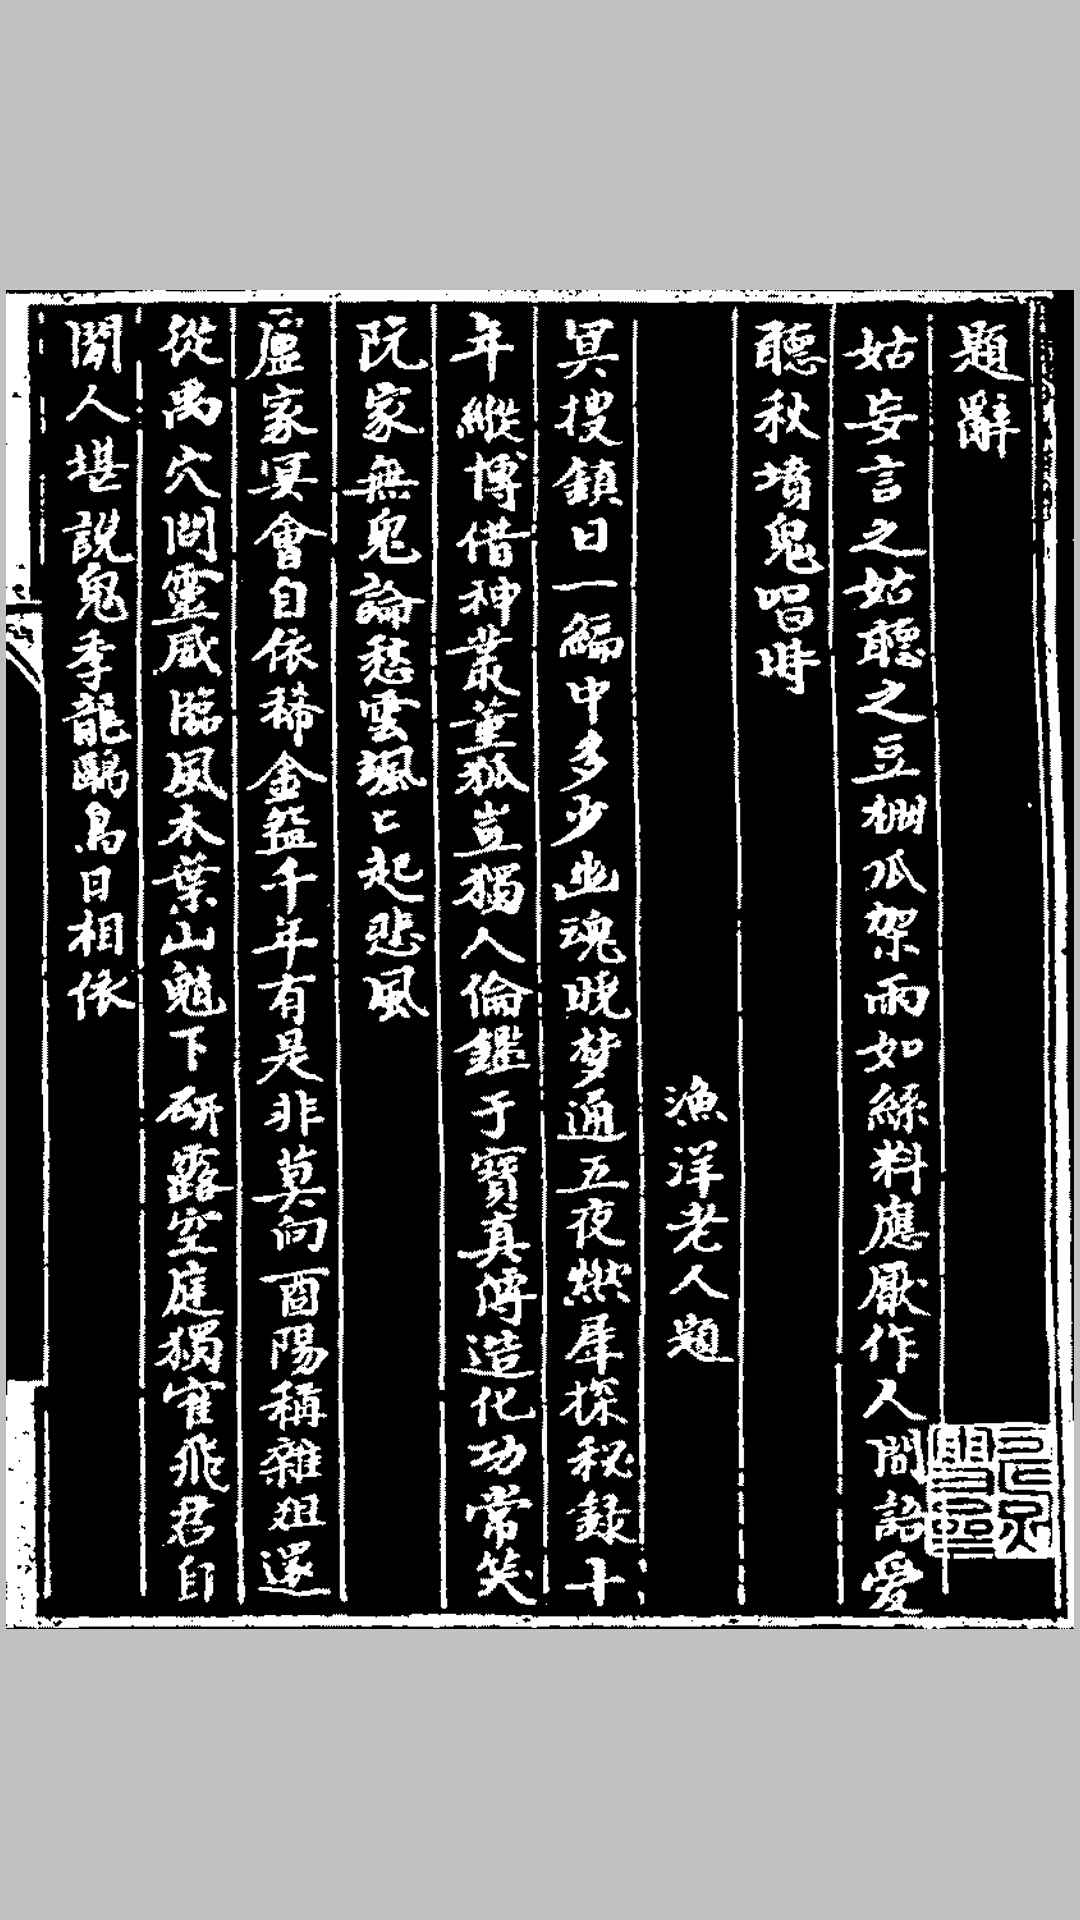 題辭
姑妄言之姑聽之豆棚瓜架雨如絲料應厭作人間語愛
聽秋墳鬼唱時
漁洋老人題
冥搜鎮日一編中多少幽魂曉夢通五夜燃犀探秘錄十
年縱博借神叢董狐豈獨人倫鑒干寶真傳造化功常笑
阮家無鬼論愁雲颯〻起悲風
盧家冥會自依稀金盌千年有是非莫向酉陽稱雜俎還
從禹穴問靈威臨風木葉山魈下研露空庭獨隺飛君自
閒人堪說鬼季龍鷗鳥日相依